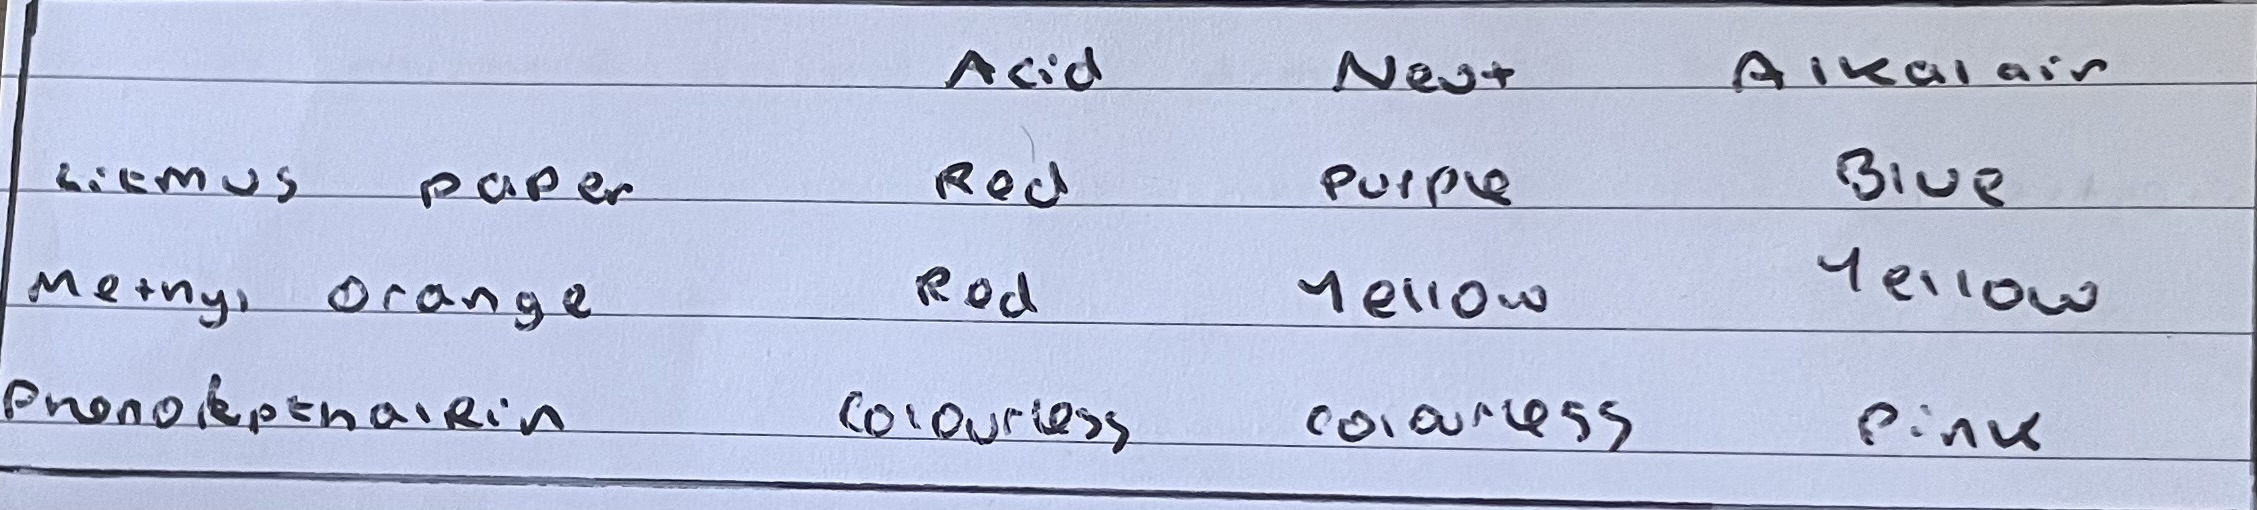 Acid Neut Alkalain
Litmus paper Red Purple Blue
Methyl orange Red Yellow Yellow
Phenolpthalein Colourless colourless Pink